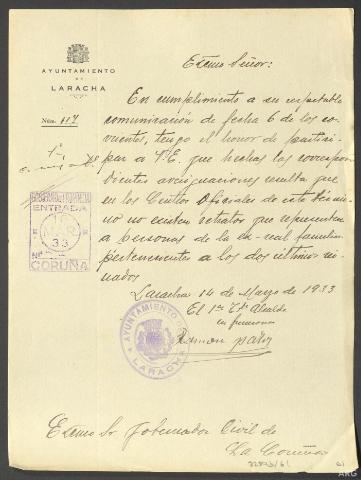 AYUNTAMIENTO
DE
LARACHA
Núm. 117
Excmo Señor:
En cumplimiento a su respetable
comunicación de fecha 6 de los co-
rrientes, tengo el honor de partici-
par a V.E. que hechas las correspon-
dientes averiguaciones resulta que
en los Centros Oficiales de este térmi-
no no existen retratos que representen
a personas de la ex-real familia
pertenecientes a los dos ultimos rei-
nados
Laracha 14 de Marzo de 1933
El 1er Tte Alcalde
en funciones
Ramon
ENTRADA
MAR
33
CORUÑA
AYUNTAMIENTO DE
LARACHA
Excmo Sr Gobernador Civil de
La Coruña
ARG